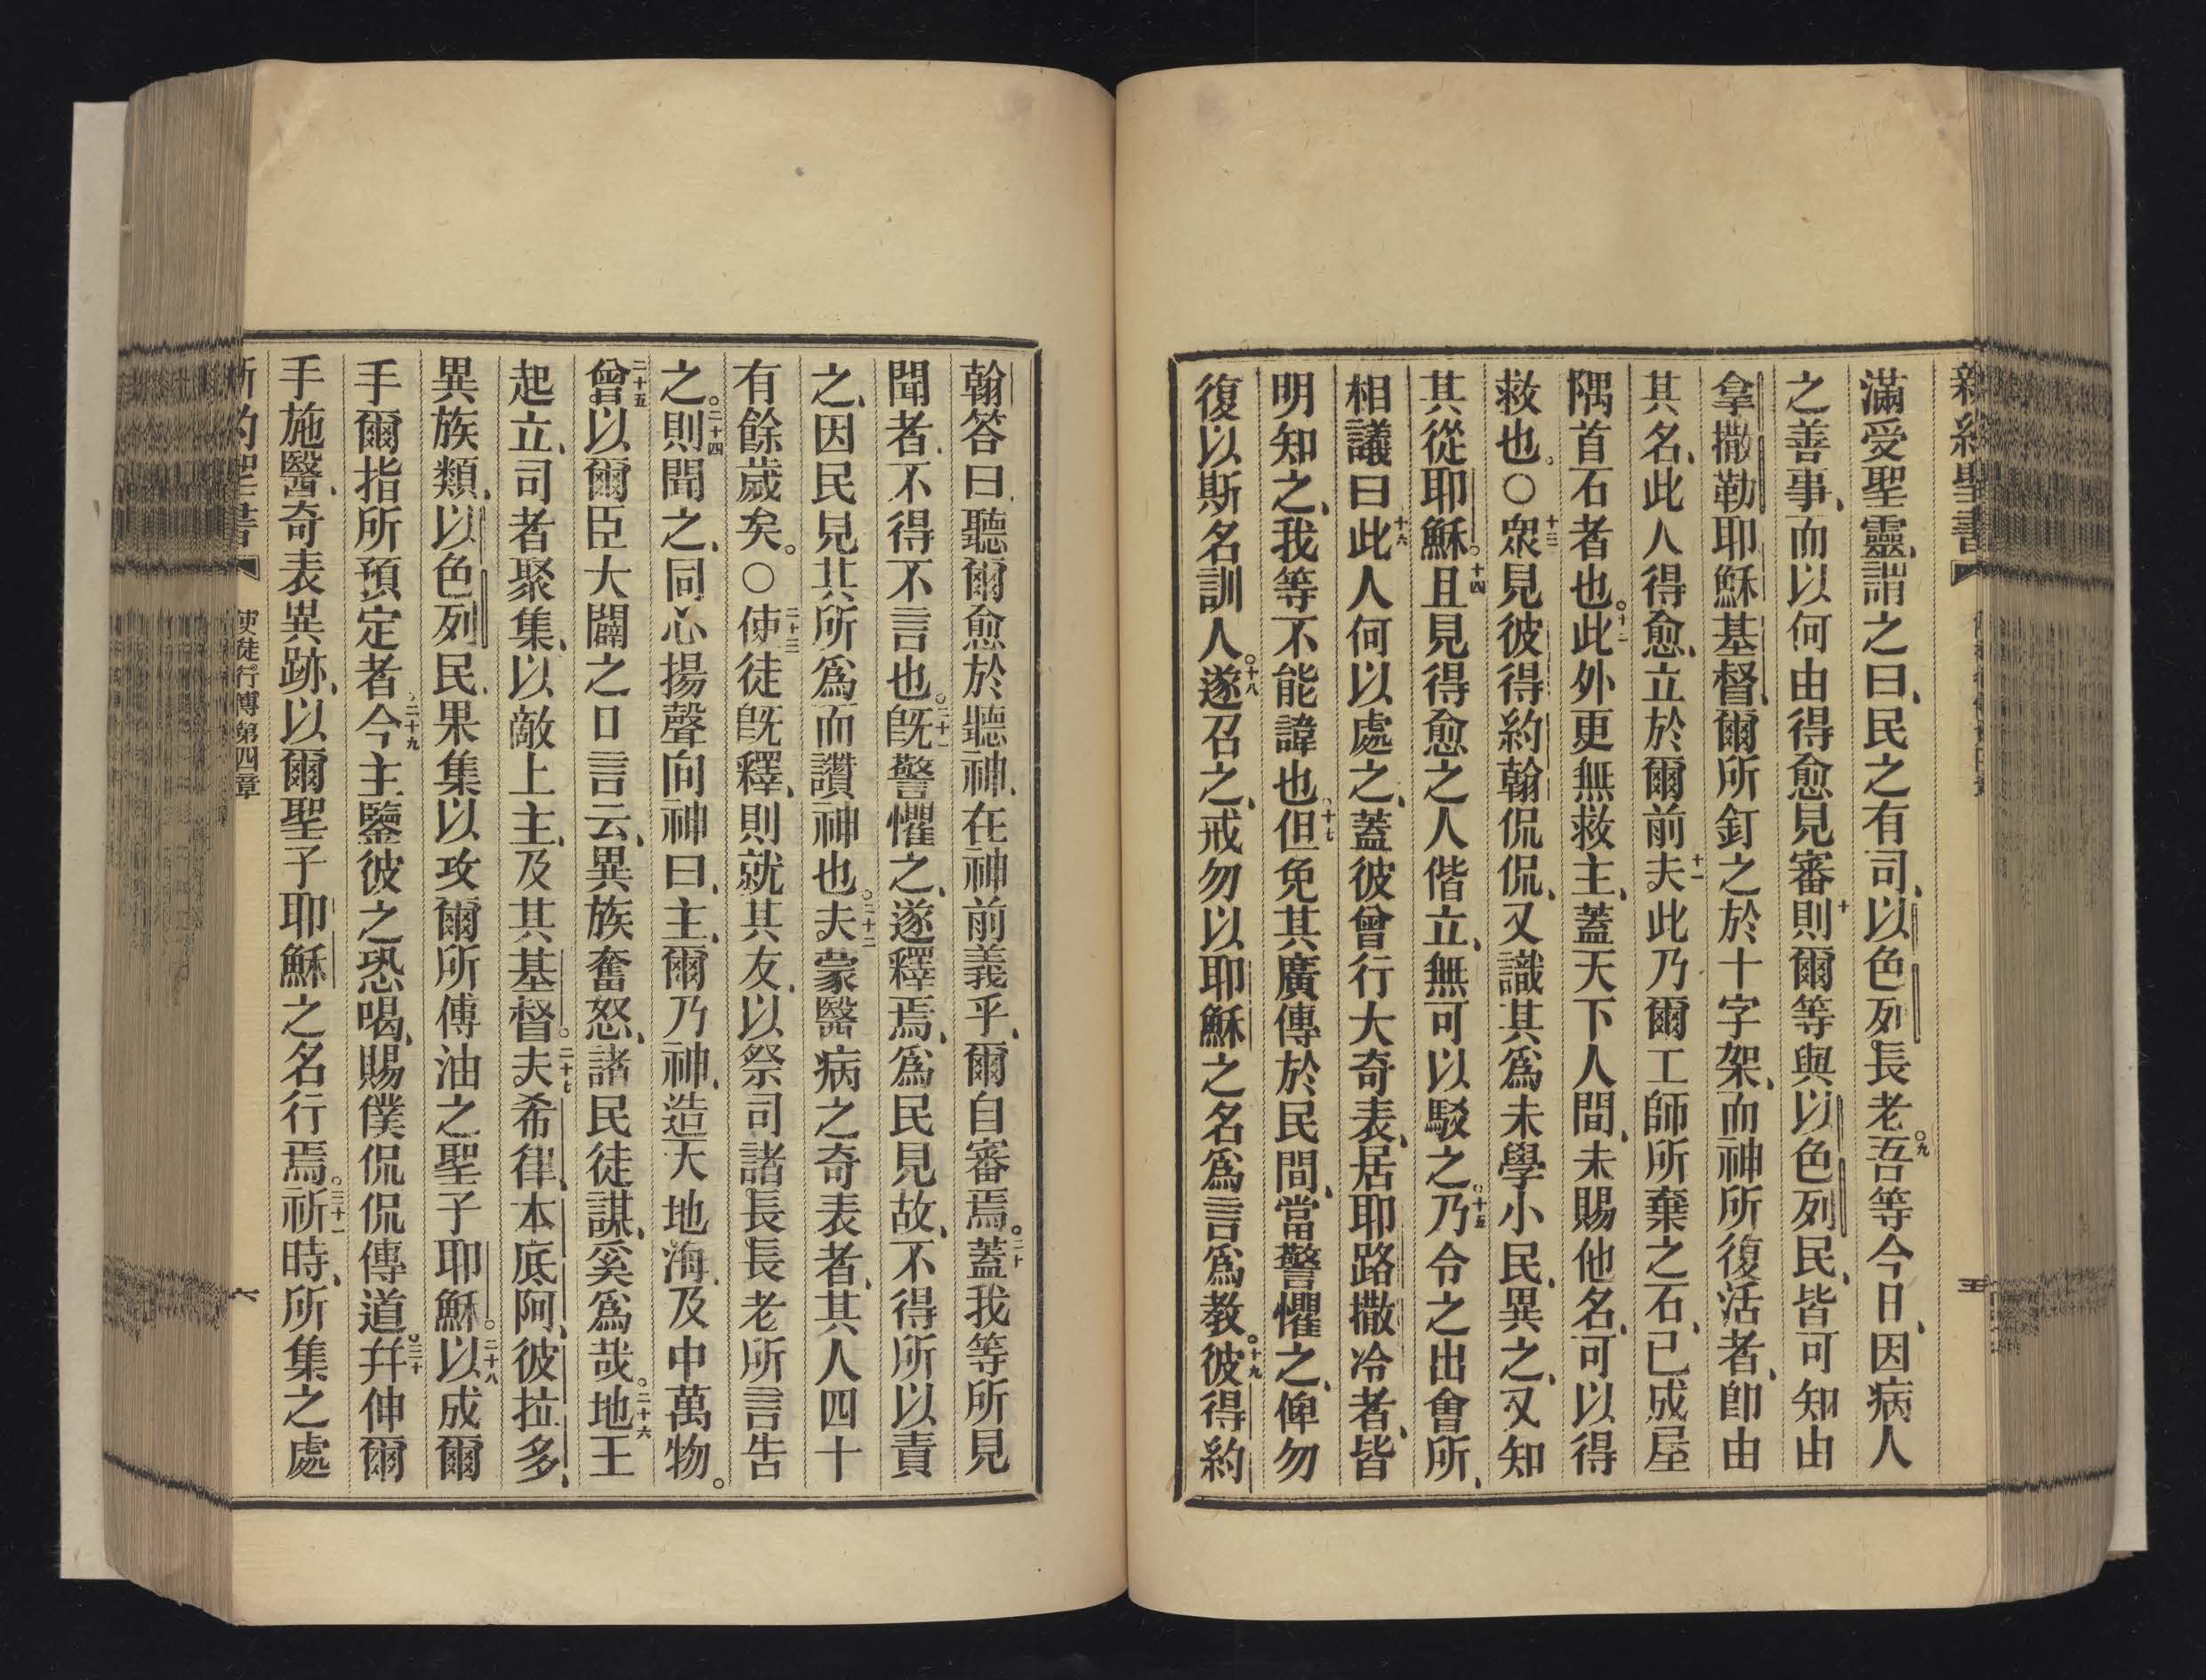 新約聖書
五
滿受聖靈、謂之曰、民之有司、以色列長老。九吾等今日、因病人
之善事、而以何由得愈見審、十則爾等與以色列民、皆可知由
拿撒勒耶穌基督、爾所釘之於十字架、而神所復活者、卽由
其名、此人得愈、立於爾前。十一夫此乃爾工師所棄之石、已成屋
隅首石者也。十二此外更無救主、蓋天下人間、未賜他名、可以得
救也。○十三衆見彼得約翰侃侃、又識其爲未學小民、異之、又知
其從耶穌。十四且見得愈之人偕立、無可以駁之。十五乃令之出會所、
相議曰、十六此人何以處之、蓋彼曾行大奇表、居耶路撒冷者、皆
明知之、我等不能諱也。十七但免其廣傳於民間、當警懼之、俾勿
復以斯名訓人。十八遂召之、戒勿以耶穌之名爲言爲教。十九彼得約
翰答曰、聽爾愈於聽神、在神前義乎、爾自審焉。二十蓋我等所見
聞者、不得不言也。二十一旣警懼之、遂釋焉、爲民見故、不得所以責
之、因民見其所爲而讚神也。二十二夫蒙醫病之奇表者、其人四十
有餘歲矣。○二十三使徒旣釋、則就其友、以祭司諸長長老所言告
之。二十四則聞之、同心揚聲向神曰、主、爾乃神、造天地海、及中萬物。
二十五曾以爾臣大闢之口言云、異族奮怒、諸民徒謀、奚爲哉。二十六地王
起立、司者聚集、以敵上主、及其基督。二十七夫希律、本底阿、彼拉多、
異族類、以色列民、果集以攻爾所傅油之聖子耶穌。二十八以成爾
手爾指所預定者。二十九今主鑒彼之恐喝、賜僕侃侃傳道。三十幷伸爾
手施醫、奇表異跡、以爾聖子耶穌之名行焉。三十一祈時、所集之處
新約聖書 使徒行傳第四章 六